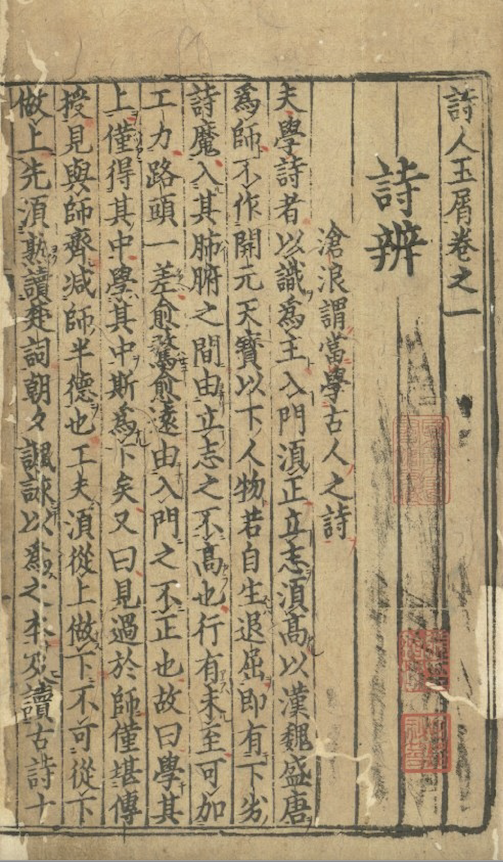 詩人玉屑卷之一
詩辨
滄浪謂當學古人之詩
夫學詩者以識為主入門須正立志須高以漢魏盛唐
為師不作開元天寶以下人物若自生退屈即有下劣
詩魔入其肺腑之間由立志之不髙也行有未至可加
工力路頭一差愈騖愈遠由入門之不正也故曰學其
上僅得其中學其中斯為下矣又曰見過於師僅堪傳
授見與師齊減師半德也工夫須從上做下不可從下
做上先須熟讀楚詞朝夕諷詠以為之本及讀古詩十